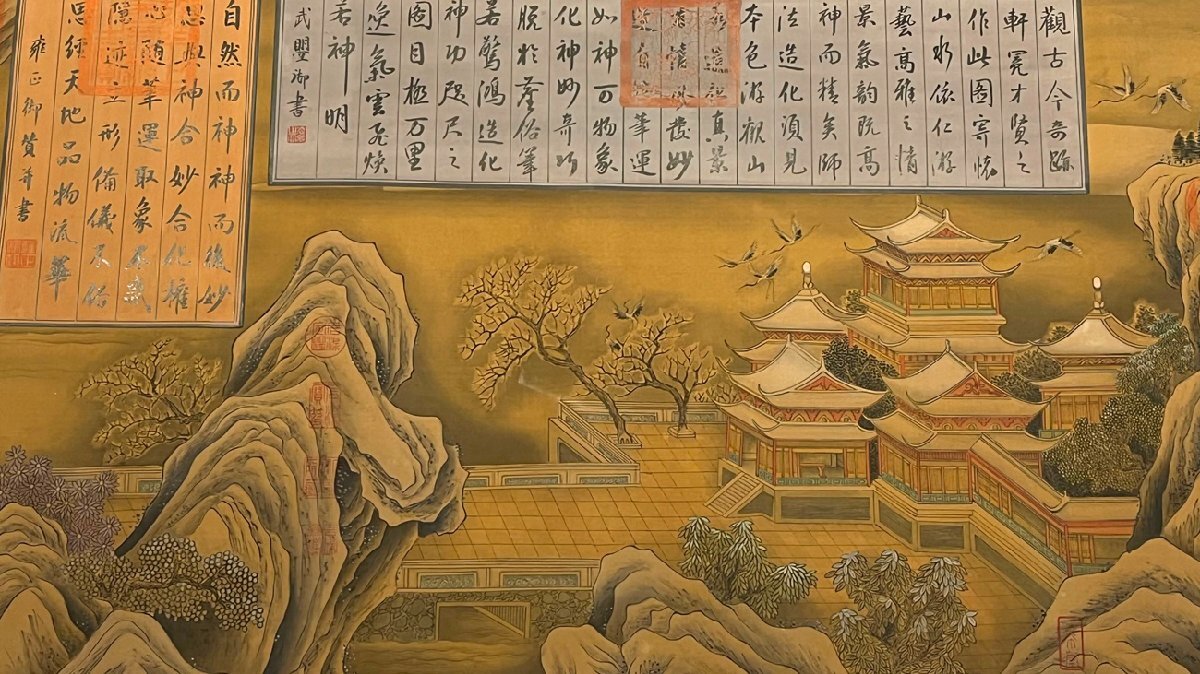 觀古今奇跡
軒冕才賢之
作此圖寄懷
山水依仁游
藝高雅之情
景氣韵既高
神而精矣師
法造化須見
本色游觀山
真景
妙
筆運
如神万物象
化神妙奇巧
脱於蹊俗筆
若驚鴻造化
神功咫尺之
圖目極万里
逸氣雲飞煥
若神明
武曌御書
自然而神神而後妙
思與神合妙合化權
心隨筆運取象不惑
隱迹立形備儀不俗
思經天地品物流華
雍正御筆并書